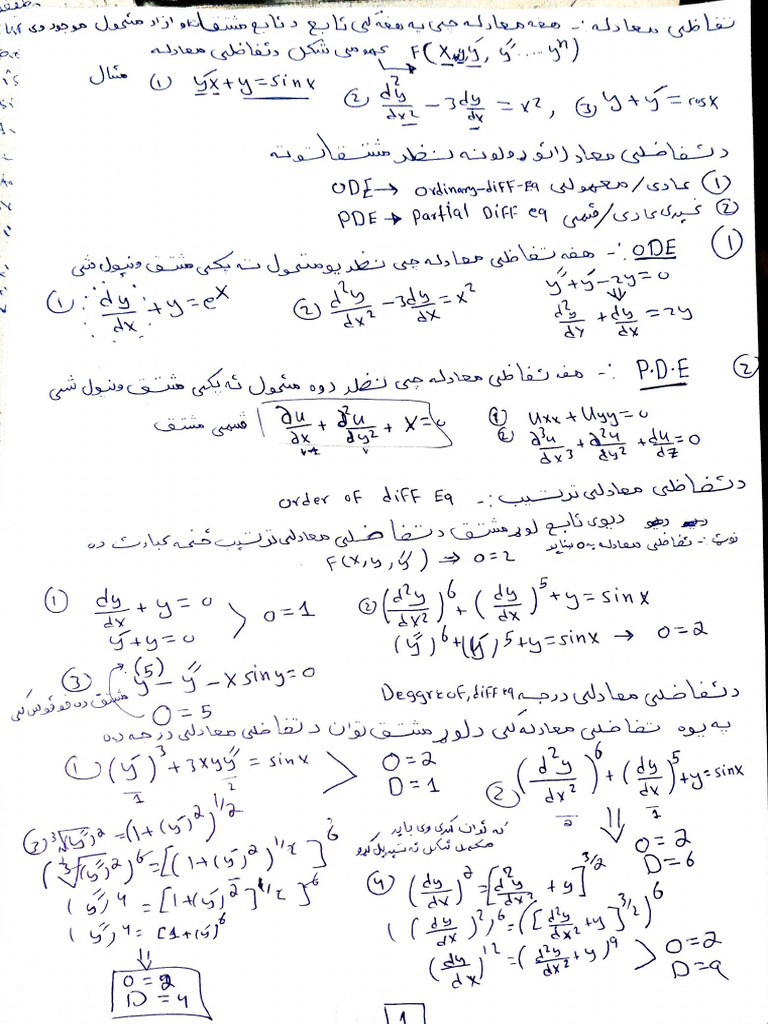 تفاظلی معادله :- هغه معادله چی په هغه کی تابع د تابع مشتقات او ازاد متحول موجود وی
F(x,y,y′,y″....yⁿ) عمومی شکل د تفاظلی معادله
مثال ① y′x+y=sinx ② d²y/dx² - 3dy/dx = x², ③ y+y′=cosx
د تفاضلی معادلو ډولونه نظر مشتقاتو ته
① عادی/معمولی ODE → ordinary-diff-Eq
② غیری عادی/قسمی PDE → Partial Diff eq
① ODE :- هغه تفاظلی معادله چی نظر یو متحول ته پکی مشتق ونیول شی
① : dy/dx + y = eˣ ② d²y/dx² - 3dy/dx = x² y″+y′-2y=0
d²y/dx + dy/dx = 2y
② P.D.E :- هغه تفاظلی معادله چی نظر دوه متحول ته پکی مشتق ونیول شی
قسمی مشتق ∂u/∂x + ∂²u/∂y² + x=0 ① Uxx + Uyy=0
② ∂³u/dx³ + ∂²u/dy² + du/dz=0
د تفاظلی معادلی ترتیب :- order of diff Eq
دیوی تابع لوړ مشتق د تفاضلی معادلی ترتیب څخه عبارت ده
نوټ :- تفاظلی معادله په o ښایو
F(x,y,y′,y″) ⇒ o=2
① dy/dx + y = 0
y′+y=0 > o=1
② (d²y/dx²)⁶ + (dy/dx)⁵ + y = sinx
(y″)⁶+(y′)⁵+y=sinx → o=2
③ y⁽⁵⁾ - y″ - x siny=0
O = 5
مشتق ده په قوس کی
د تفاضلی معادلی درجه Deggre of, diff eq
په یوه تفاضلی معادله کی د لوړ مشتق توان د تفاظلی معادلی درجه ده
① (y′)³ + 3xyy″ = sinx > O=2
D=1
② (d²y/dx²)⁶ + (dy/dx)⁵ + y=sinx
O=2
D=6
③ ∛(y″)² = (1+(y′)²)^1/2
(∛(y″)²)⁶ = [(1+(y′)²)^1/2]⁶
(y″)⁴ = [1+(y′)²]^1/2]⁶
(y″)⁴ = [1+(y′)⁶
O = 2
D = 4
که توان کسری وی باید
④ (dy/dx)² = [d²y/dx² + y]^3/2
((dy/dx)²)⁶ = ([d²y/dx² + y]^3/2)⁶
(dy/dx)¹² = (d²y/dx² + y)⁹ > O=2
D=9
1